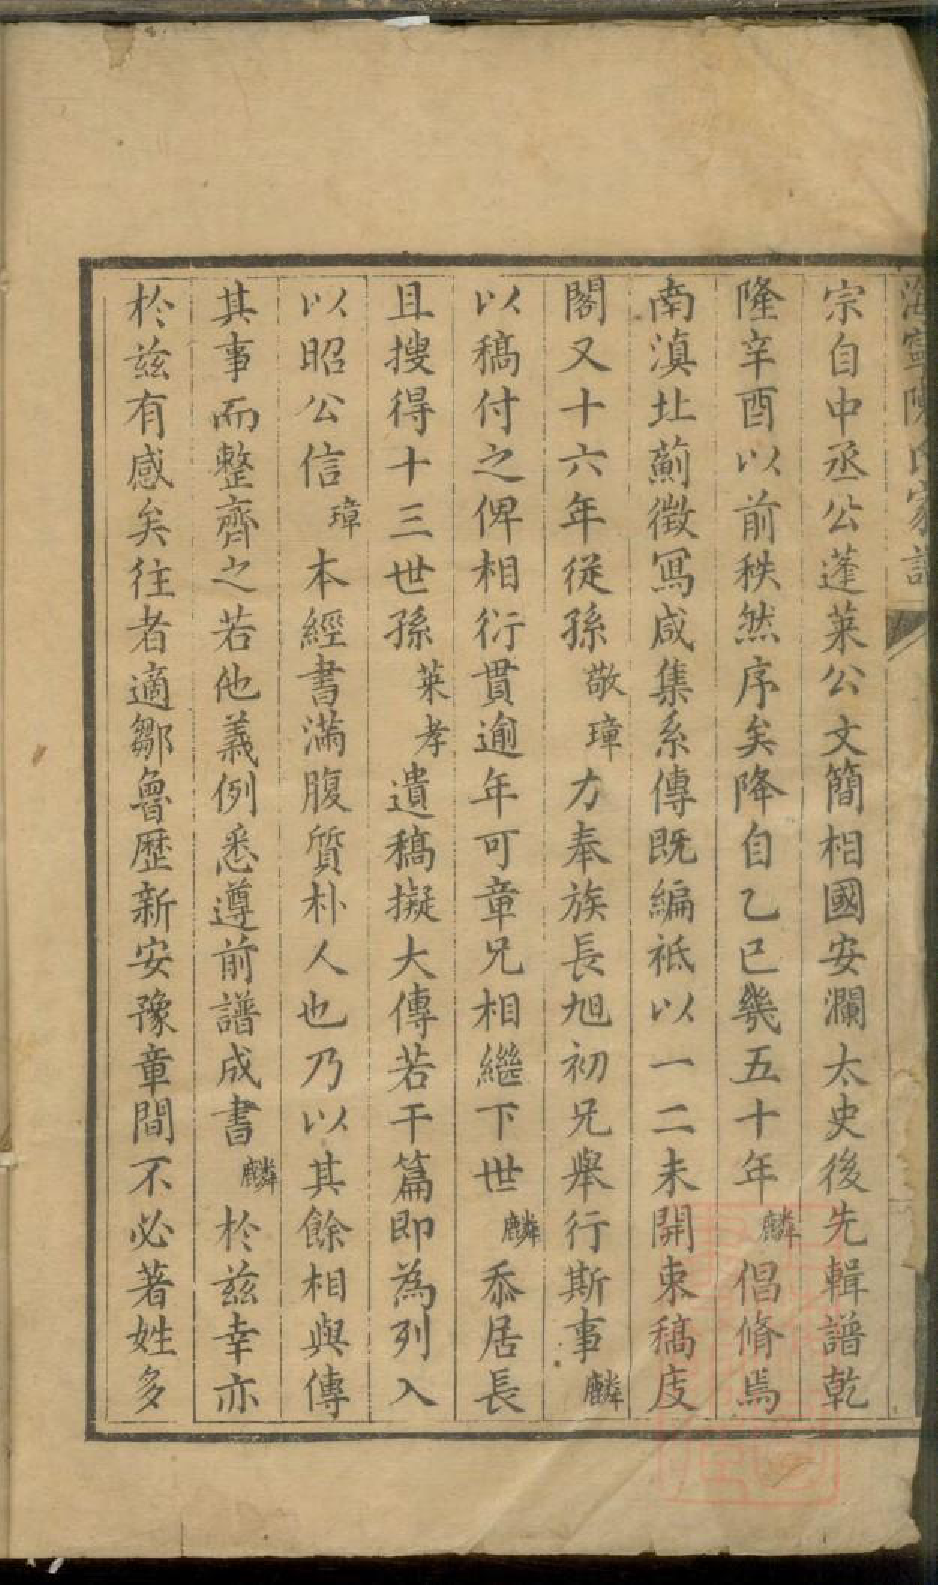 海寧陳氏家譜
宗自中丞公蓬萊公文簡相國安瀾太史後先輯譜乾
隆辛酉以前秩然序矣降自乙巳幾五十年麟倡脩焉
南滇北薊徵寫咸集系傳既編袛以一二未開束稿庋
閣又十六年從孫敬璋力奉族長旭初兄舉行斯事麟
以稿付之俾相衍貫逾年可章兄相繼下世麟忝居長
且搜得十三世孫萊孝遺稿擬大傳若干篇即為列入
以昭公信璋本經書滿腹質朴人也乃以其餘相與傳
其事而整齊之若他義例悉遵前譜成書麟於茲幸亦
於茲有感矣往者適鄒魯歷新安豫章間不必著姓多